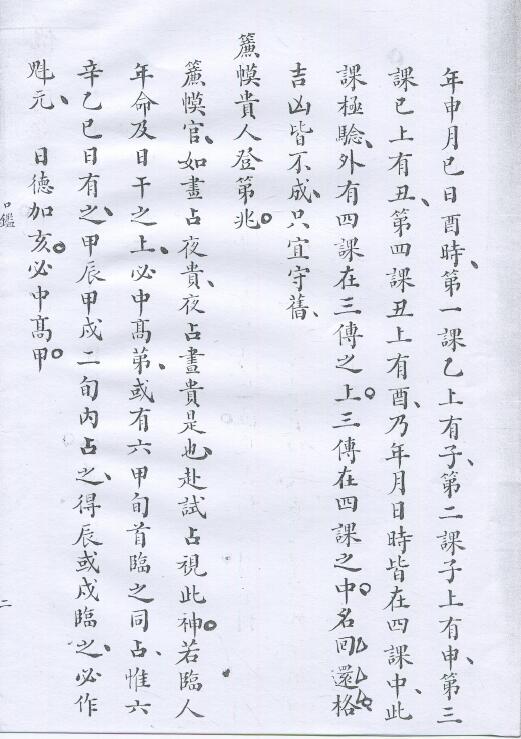 年申月巳日酉時、第一課乙上有子、第二課子上有申、第三
課巳上有丑、第四課丑上有酉、乃年月日時皆在四課中、此
課極驗、外有四課在三傳之上。三傳在四課之中。名回還格
吉凶皆不成、只宜守舊、
簾幙貴人登第兆。
簾幙官、如晝占夜貴、夜占晝貴是也、赴試占視此神。若臨人
年命及日干之上、必中髙苐、或有六甲旬首臨之同占、惟六
辛乙巳日有之、甲辰甲戍二旬內占之、得辰或戍臨之、必作
魁元、日德加亥。必中髙甲。
鑑
二